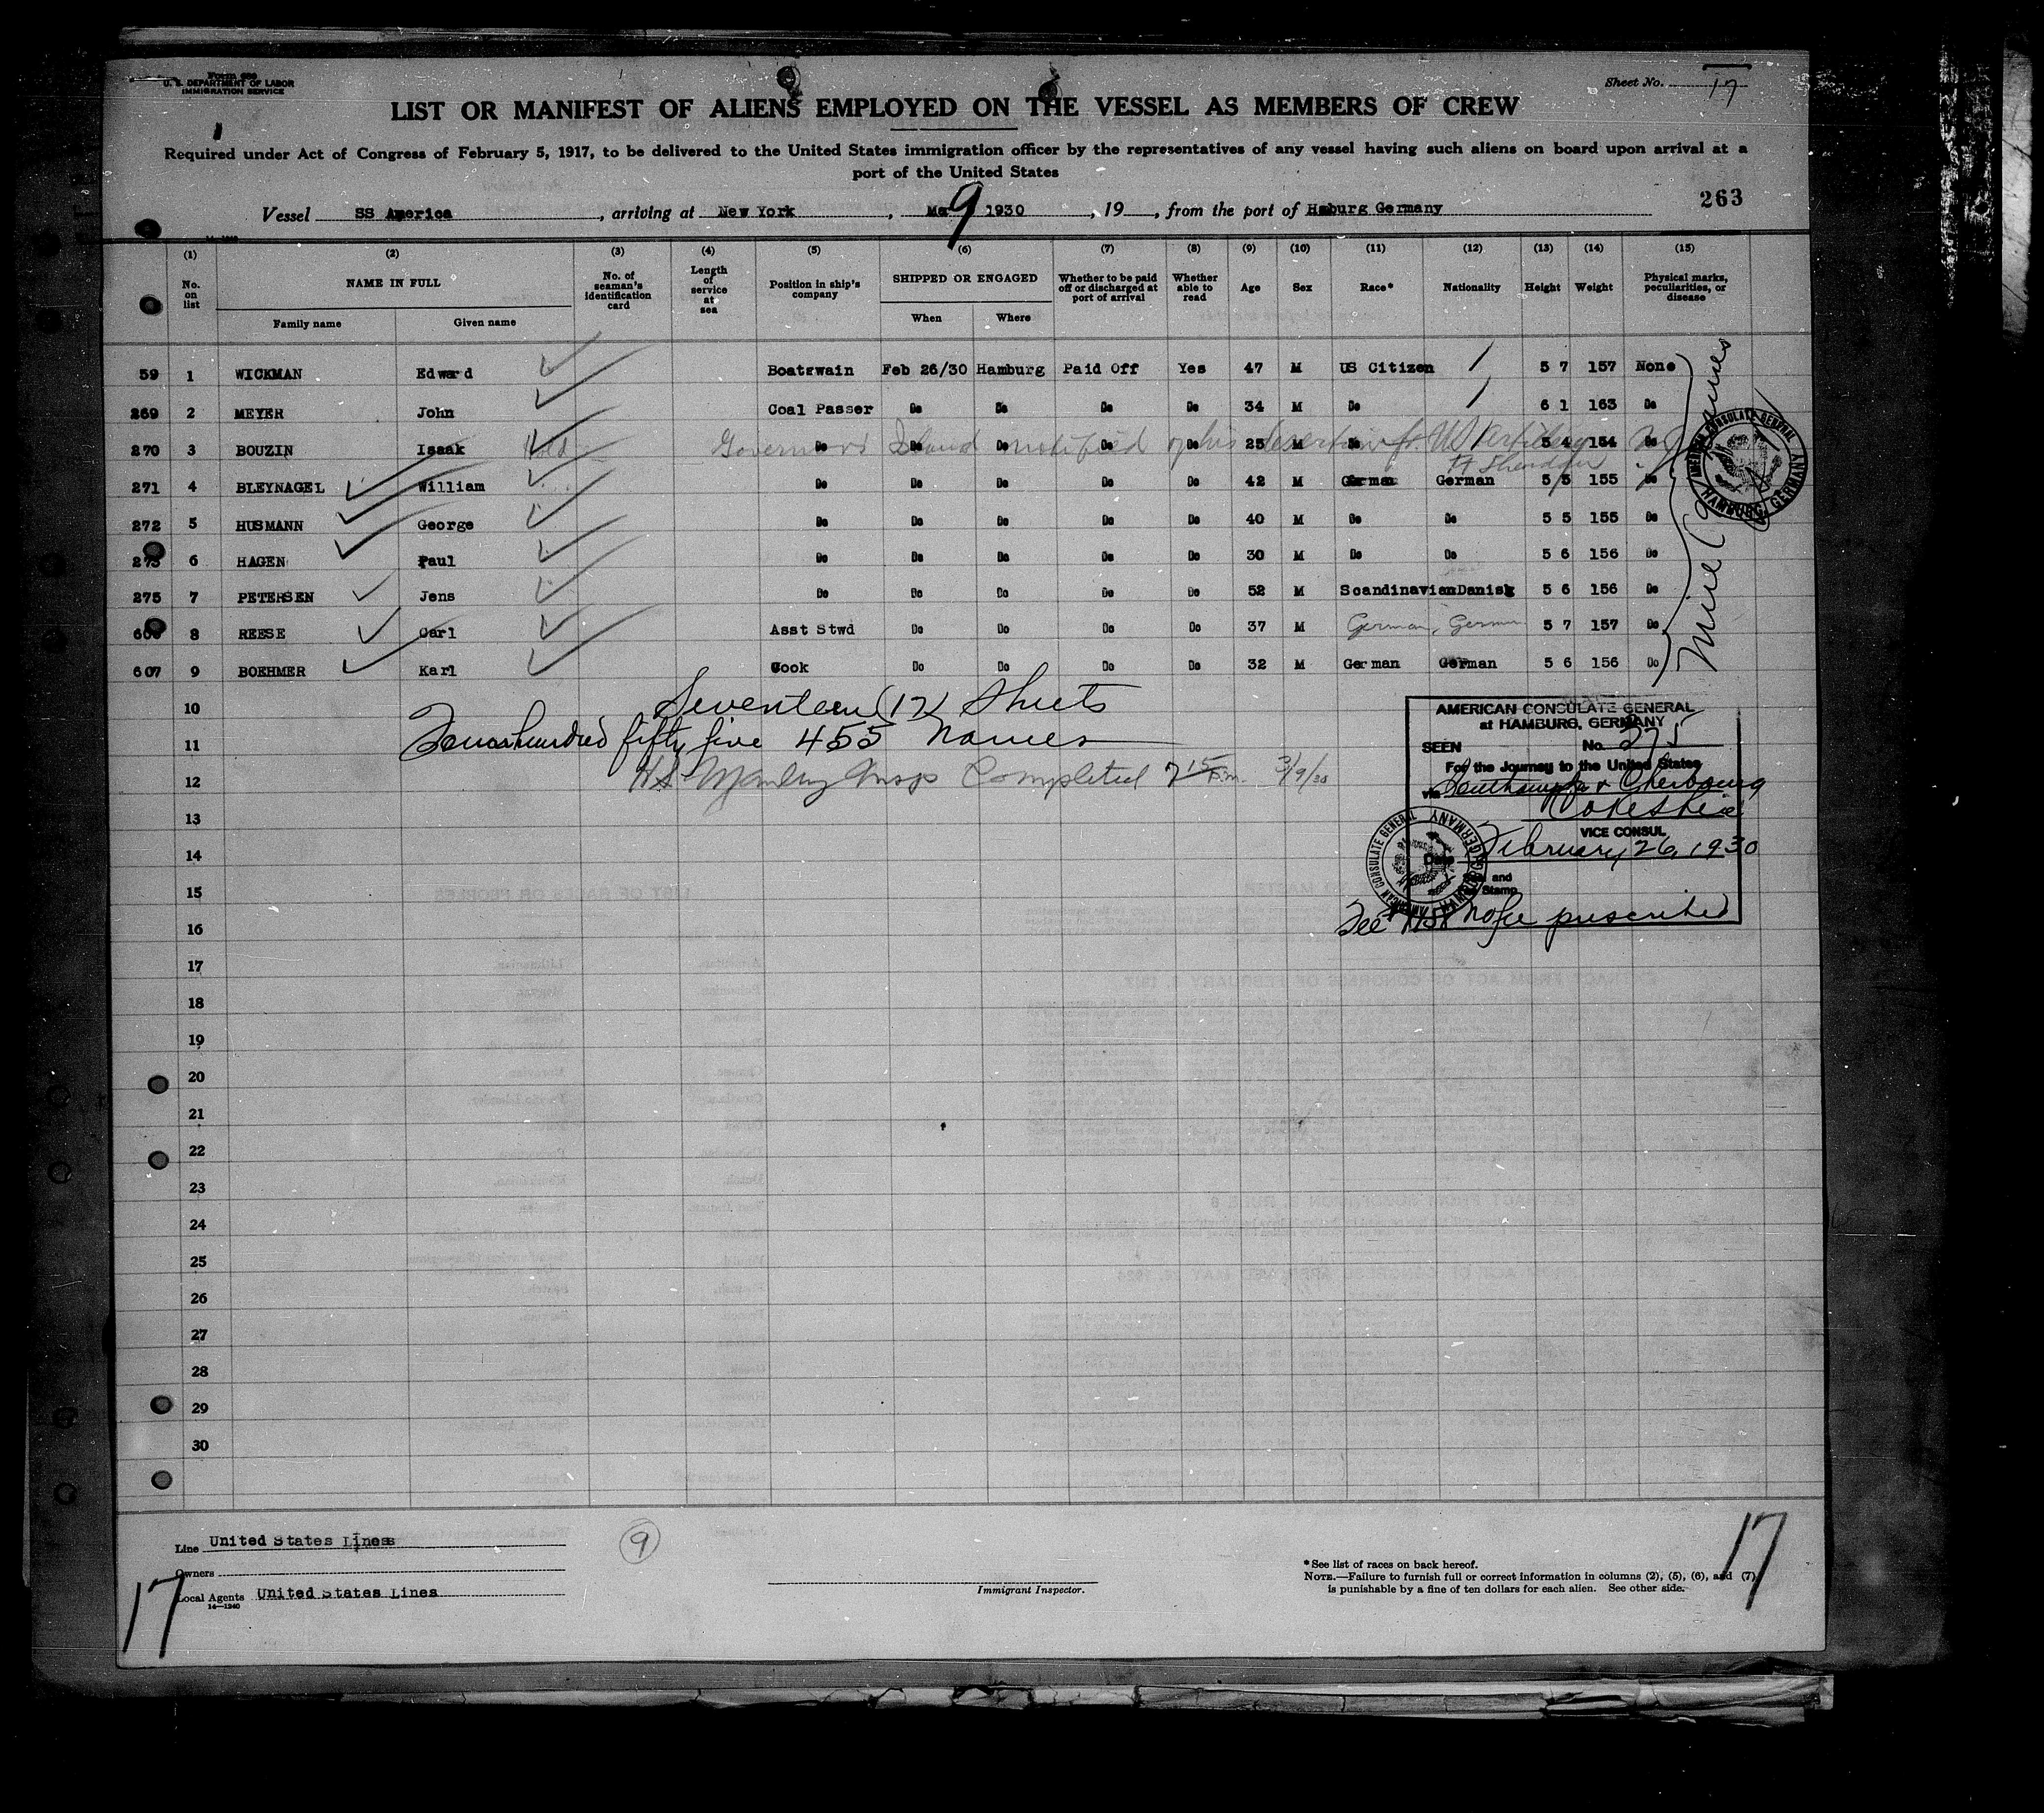 Form 689
U. S. DEPARTMENT OF LABOR
IMMIGRATION SERVICE
Sheet No. 17
LIST OR MANIFEST OF ALIENS EMPLOYED ON THE VESSEL AS MEMBERS OF CREW
Required under Act of Congress of February 5, 1917, to be delivered to the United States immigration officer by the representatives of any vessel having such aliens on board upon arrival at a
port of the United States
263
Vessel SS America, arriving at New York, Mar 9 1930, 19, from the port of Hmburg Germany
(1) (2) (3) (4) (5) (6) (7) (8) (9) (10) (11) (12) (13) (14) (15)
No. on list NAME IN FULL Family name Given name No. of seaman's identification card Length of service at sea Position in ship's company SHIPPED OR ENGAGED When Where Whether to be paid off or discharged at port of arrival Whether able to read Age Sex Race* Nationality Height Weight Physical marks, peculiarities, or disease
59 1 WICKMAN Edward Boatswain Feb 26/30 Hamburg Paid Off Yes 47 M US Citizen 5 7 157 None
269 2 MEYER John Coal Passer Do Do Do Do 34 M Do 6 1 163 Do
270 3 BOUZIN Isaak Held Do Do Do Do Do 25 M Do 5 4 154 Do
Governors Island notified of his desertion fr. US Artillery
Ft Sheridan
271 4 BLEYNAGEL William Do Do Do Do Do 42 M German German 5 5 155 Do
272 5 HUSMANN George Do Do Do Do Do 40 M Do Do 5 5 155 Do
273 6 HAGEN Paul Do Do Do Do Do 30 M Do Do 5 6 156 Do
275 7 PETERSEN Jens Do Do Do Do Do 52 M Scandinavian Danish 5 6 156 Do
606 8 REESE Carl Asst Stwd Do Do Do Do 37 M German, German 5 7 157 Do
607 9 BOEHMER Karl Cook Do Do Do Do 32 M German German 5 6 156 Do
AMERICAN CONSULATE GENERAL HAMBURG, GERMANY
10 Seventeen (17) Sheets
11 Four hundred fifty five 455 Names
12 Insp Completed 7 15 P.m. 3/9/30
13
14
15
16
17
18
19
20
21
22
23
24
25
26
27
28
29
30
AMERICAN CONSULATE GENERAL
at HAMBURG, GERMANY
SEEN No. 275
For the Journey to the United States
via Southampton & Cherbourg
VICE CONSUL
Date February 26, 1930
Seal and
Fee Stamp
AMERICAN CONSULATE GENERAL HAMBURG GERMANY
No fee prescribed
Line United States Lines
Owners
Local Agents United States Lines
14—1240
9
Immigrant Inspector.
*See list of races on back hereof.
NOTE.—Failure to furnish full or correct information in columns (2), (5), (6), and (7)
is punishable by a fine of ten dollars for each alien. See other side.
17
17